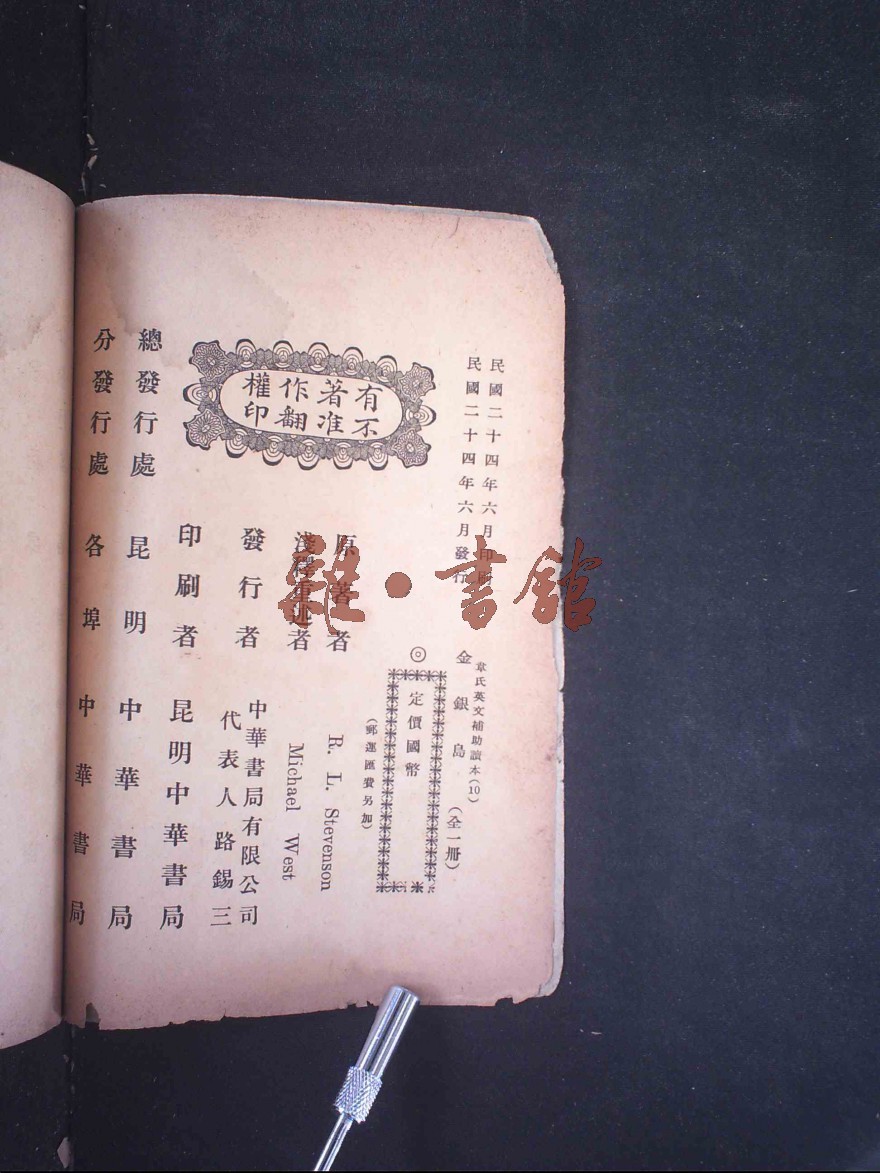 民國二十四年六月印刷
民國二十四年六月發行
韋氏英文補助讀本(10)
金銀島(全一冊)
◎定價國幣
(郵運匯費另加)
有著作權
不准翻印
原著者 R. L. Stevenson
淺釋重述者 Michael West
發行者 中華書局有限公司
代表人路錫三
印刷者 昆明中華書局
總發行處 昆明中華書局
分發行處 各埠中華書局
雜·書館